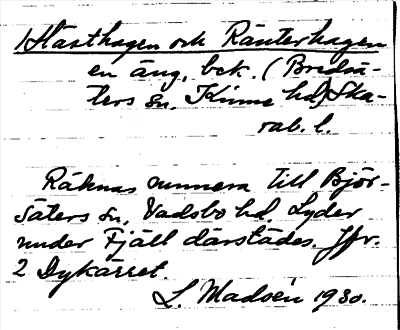 1 Hästhagen och Ränterhagen
en äng, bek. (Bredsä-
ters sn, Kinne hd) Ska-
rab. l.
Räknas numera till Björ-
säters sn, Vadsbo hd. Lyder
under Fjäll därstädes. Jfr.
2 Dykärret.
L. Madsén 1930.